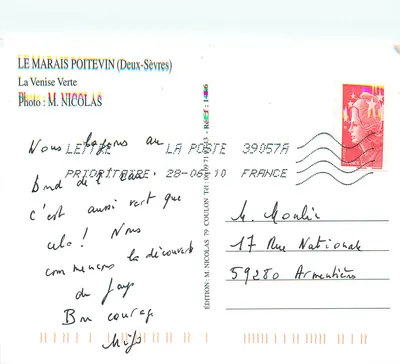 LE MARAIS POITEVIN (Deux-Sèvres)
La Venise Verte
Photo : M. NICOLAS
LETTRE LA POSTE 39057A
PRIORITAIRE 28-06-10 FRANCE
Nous logeons au
bord de l'eau
c'est aussi vert que
cela ! Nous
commençons la découverte
du pays
Bon courage
ÉDITION : M. NICOLAS 79 COULON Tél :
M. Moulin
17 Rue Nationale
59280 Armentières